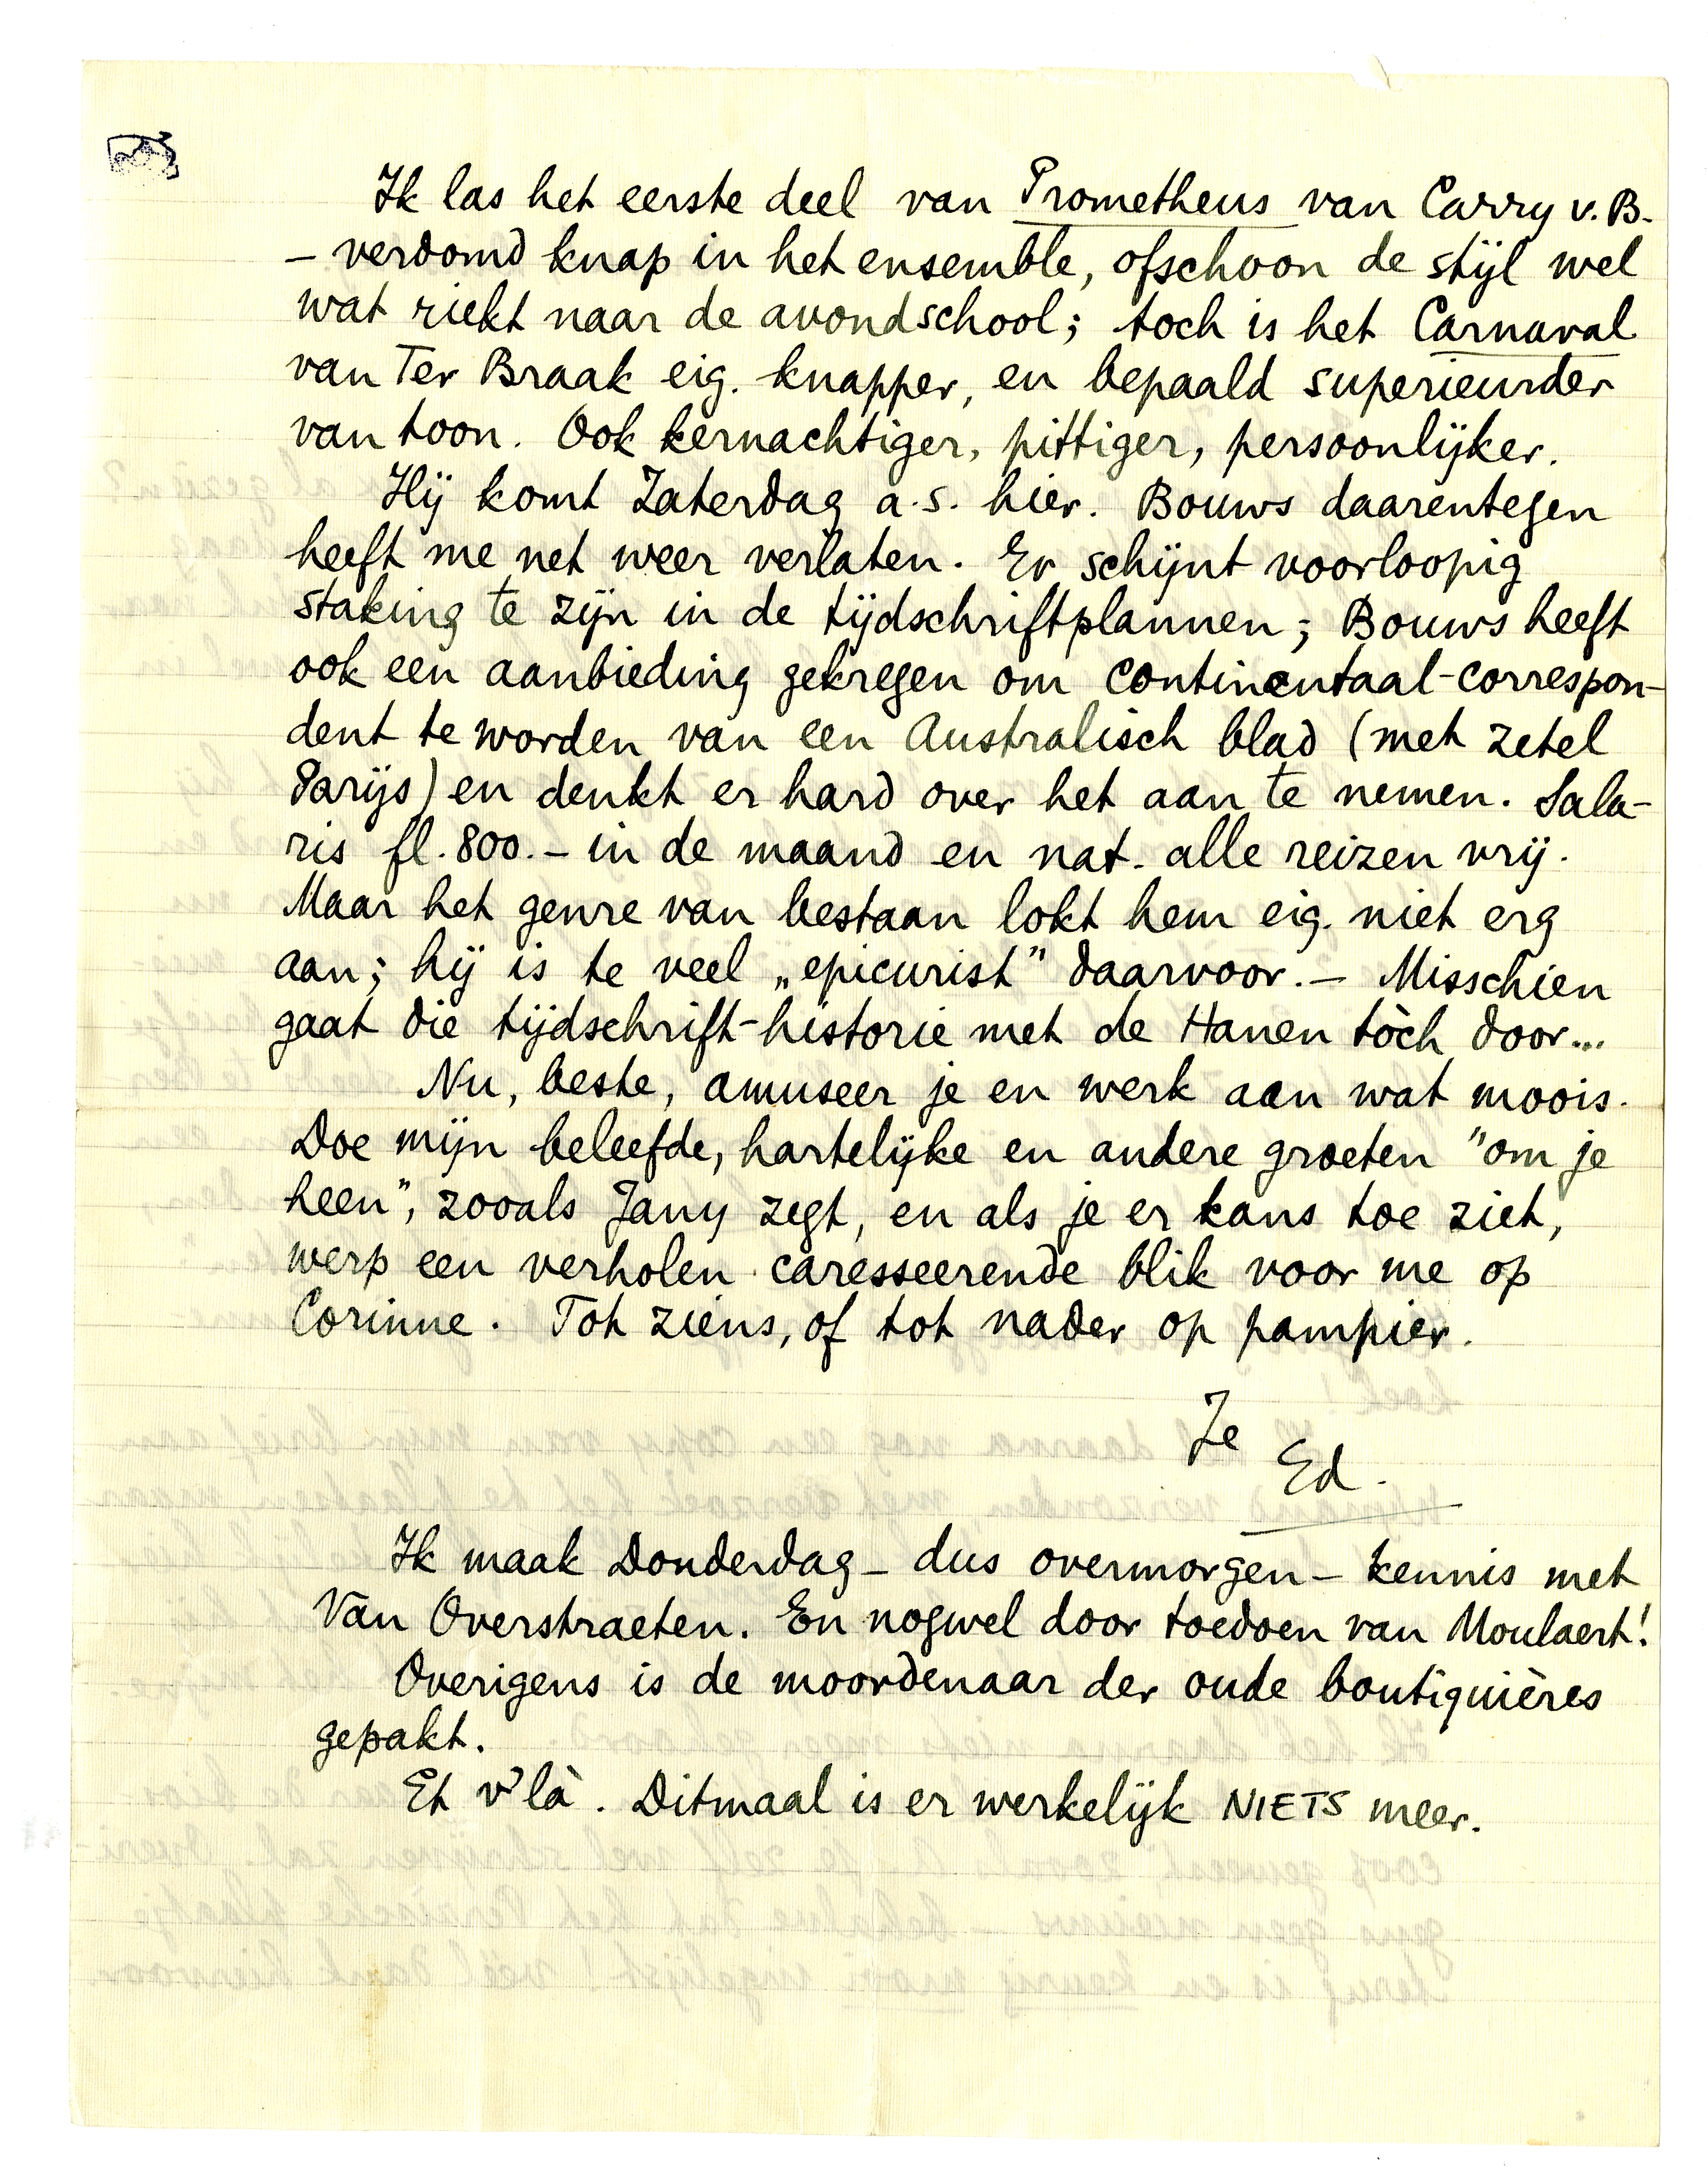 Ik las het eerste deel van Prometheus van Carry v. B.
– verdomd knap in het ensemble, ofschoon de stijl wel
wat riekt naar de avondschool; toch is het Carnaval
van Ter Braak eig. knapper, en bepaald superieurder
van toon. Ook kernachtiger, pittiger, persoonlijker.
Hij komt Zaterdag a.s. hier. Bouws daarentegen
heeft me net weer verlaten. Er schijnt voorloopig
staking te zijn in de tijdschriftplannen; Bouws heeft
ook een aanbieding gekregen om continentaal-correspon-
dent te worden van een Australisch blad (met zetel
Parijs) en denkt er hard over het aan te nemen. Sala-
ris fl. 800.– in de maand en nat. alle reizen vrij.
Maar het genre van bestaan lokt hem eig. niet erg
aan; hij is te veel „epicurist” daarvoor. – Misschien
gaat die tijdschrift-historie met de Hanen tòch door...
Nu, beste, amuseer je en werk aan wat moois.
Doe mijn beleefde, hartelijke en andere groeten "om je
heen", zooals Jany zegt, en als je er kans toe ziet,
werp een verholen caresseerende blik voor me op
Corinne. Tot ziens, of tot nader op pampier.
Je
Ed.
Ik maak Donderdag – dus overmorgen – kennis met
Van Overstraeten. En nogwel door toedoen van Moulaert!
Overigens is de moordenaar der oude boutiquières
gepakt.
Et v'là. Ditmaal is er werkelijk NIETS meer.